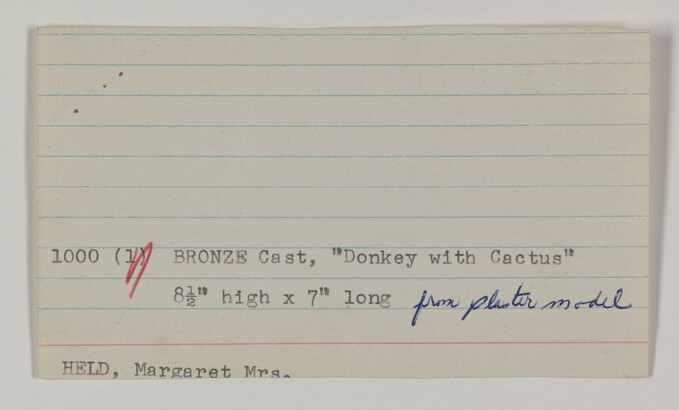 1000 (1) BRONZE Cast, "Donkey with Cactus"
8½" high x 7" long from plaster model
HELD, Margaret Mrs.